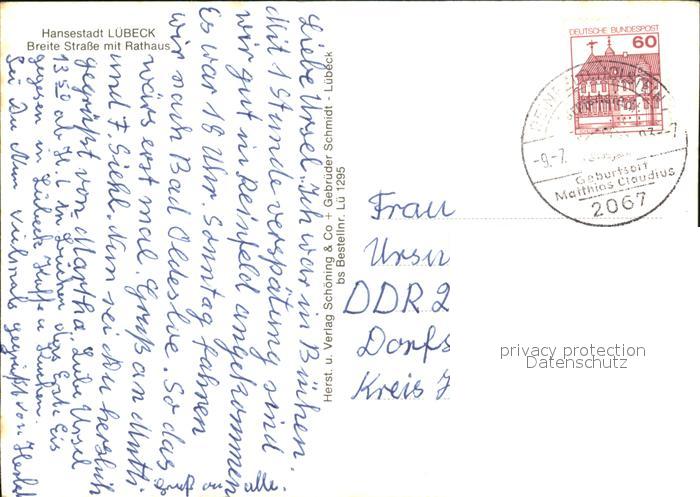 Hansestadt LÜBECK
Breite Straße mit Rathaus
Liebe Ursel, Ich war in Büchen.
Mit 1 Stunde verspätung sind
wir gut in Reinfeld angekommen
Es war 18 Uhr. Sonntag fahren
wir nach Bad Oldesloe. So das
wärs erst mal. Gruß an Mutti
und F. Siehl. Nun sei du herzlich
gegrüßt von Martha. Liebe Ursel
13 50 ab H. in Büchen das Erste Eis
gegessen in Lübeck Kaffe u Kuchen.
Sei Du Nun vielmals gegrüßt von
Gruß an alle.
Herst. u. Verlag Schöning & Co + Gebrüder Schmidt - Lübeck
bs Bestellnr. Lü 1295
DEUTSCHE BUNDESPOST
60
-9.-7
Geburtsort
Matthias Claudius
2067
Frau
Ursu
DDR 2
Dorfs
Kreis
privacy protection
Datenschutz